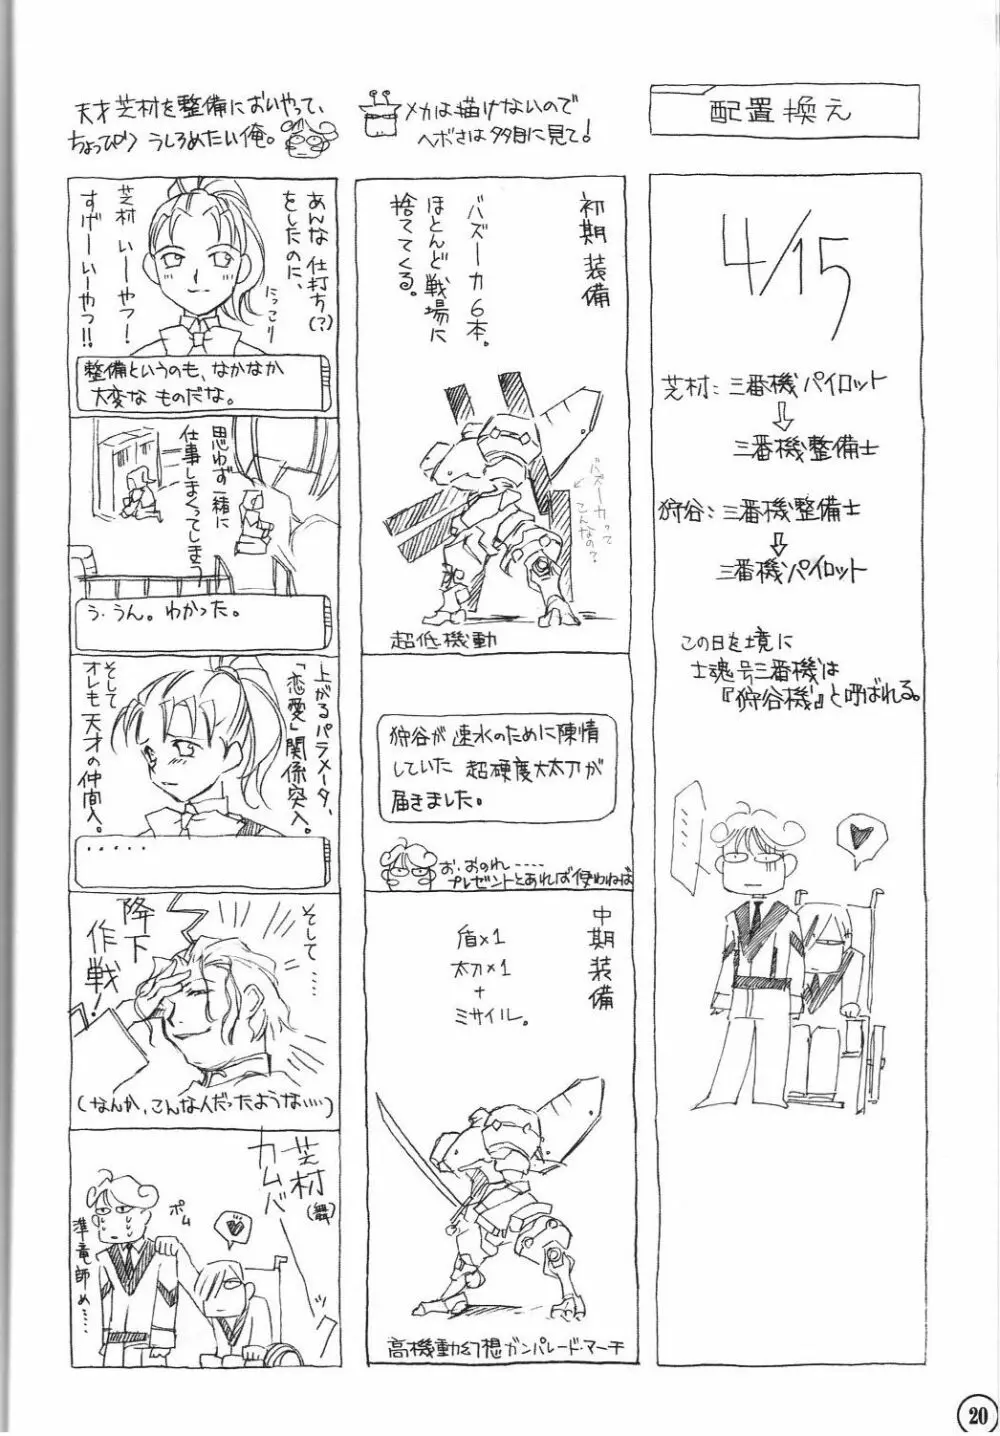 配置換え
4/15
芝村:三番機パイロット
⇩
三番機整備士
狩谷:三番機整備士
⇩
三番機パイロット
この日を境に
士魂号三番機は
『狩谷機』と呼ばれる。
‥‥‥
メカは描けないので
ヘボさは多目に見て!
初期装備
バズーカ6本。
ほとんど戦場に
捨ててくる。
バズーカって
こんなの?
超低機動
狩谷が速水のために陳情
していた 超硬度大太刀が
届きました。
お・おのれ‥‥‥
プレゼントとあれば使わねば
中期装備
盾×1
太刀×1
+
ミサイル。
高機動幻想ガンパレード・マーチ
天才芝村を整備においやって、
ちょっぴりうしろめたい俺。
あんな仕打ち(?)
をしたのに、
芝村 いーやつー!
すげーいーやつ!!
にっこり
整備というのも、なかなか
大変な ものだな。
思わず一緒に
仕事しまくってしまう
う・うん。わかった。
上がるパラメータ、
「恋愛」関係突入。
そして
オレも天才の仲間入。
‥‥‥
そして‥‥
降下
作戦!
(なんか、こんな人だったような‥‥)
芝村(舞)
カムバーック
ポム
準竜師め‥‥
20